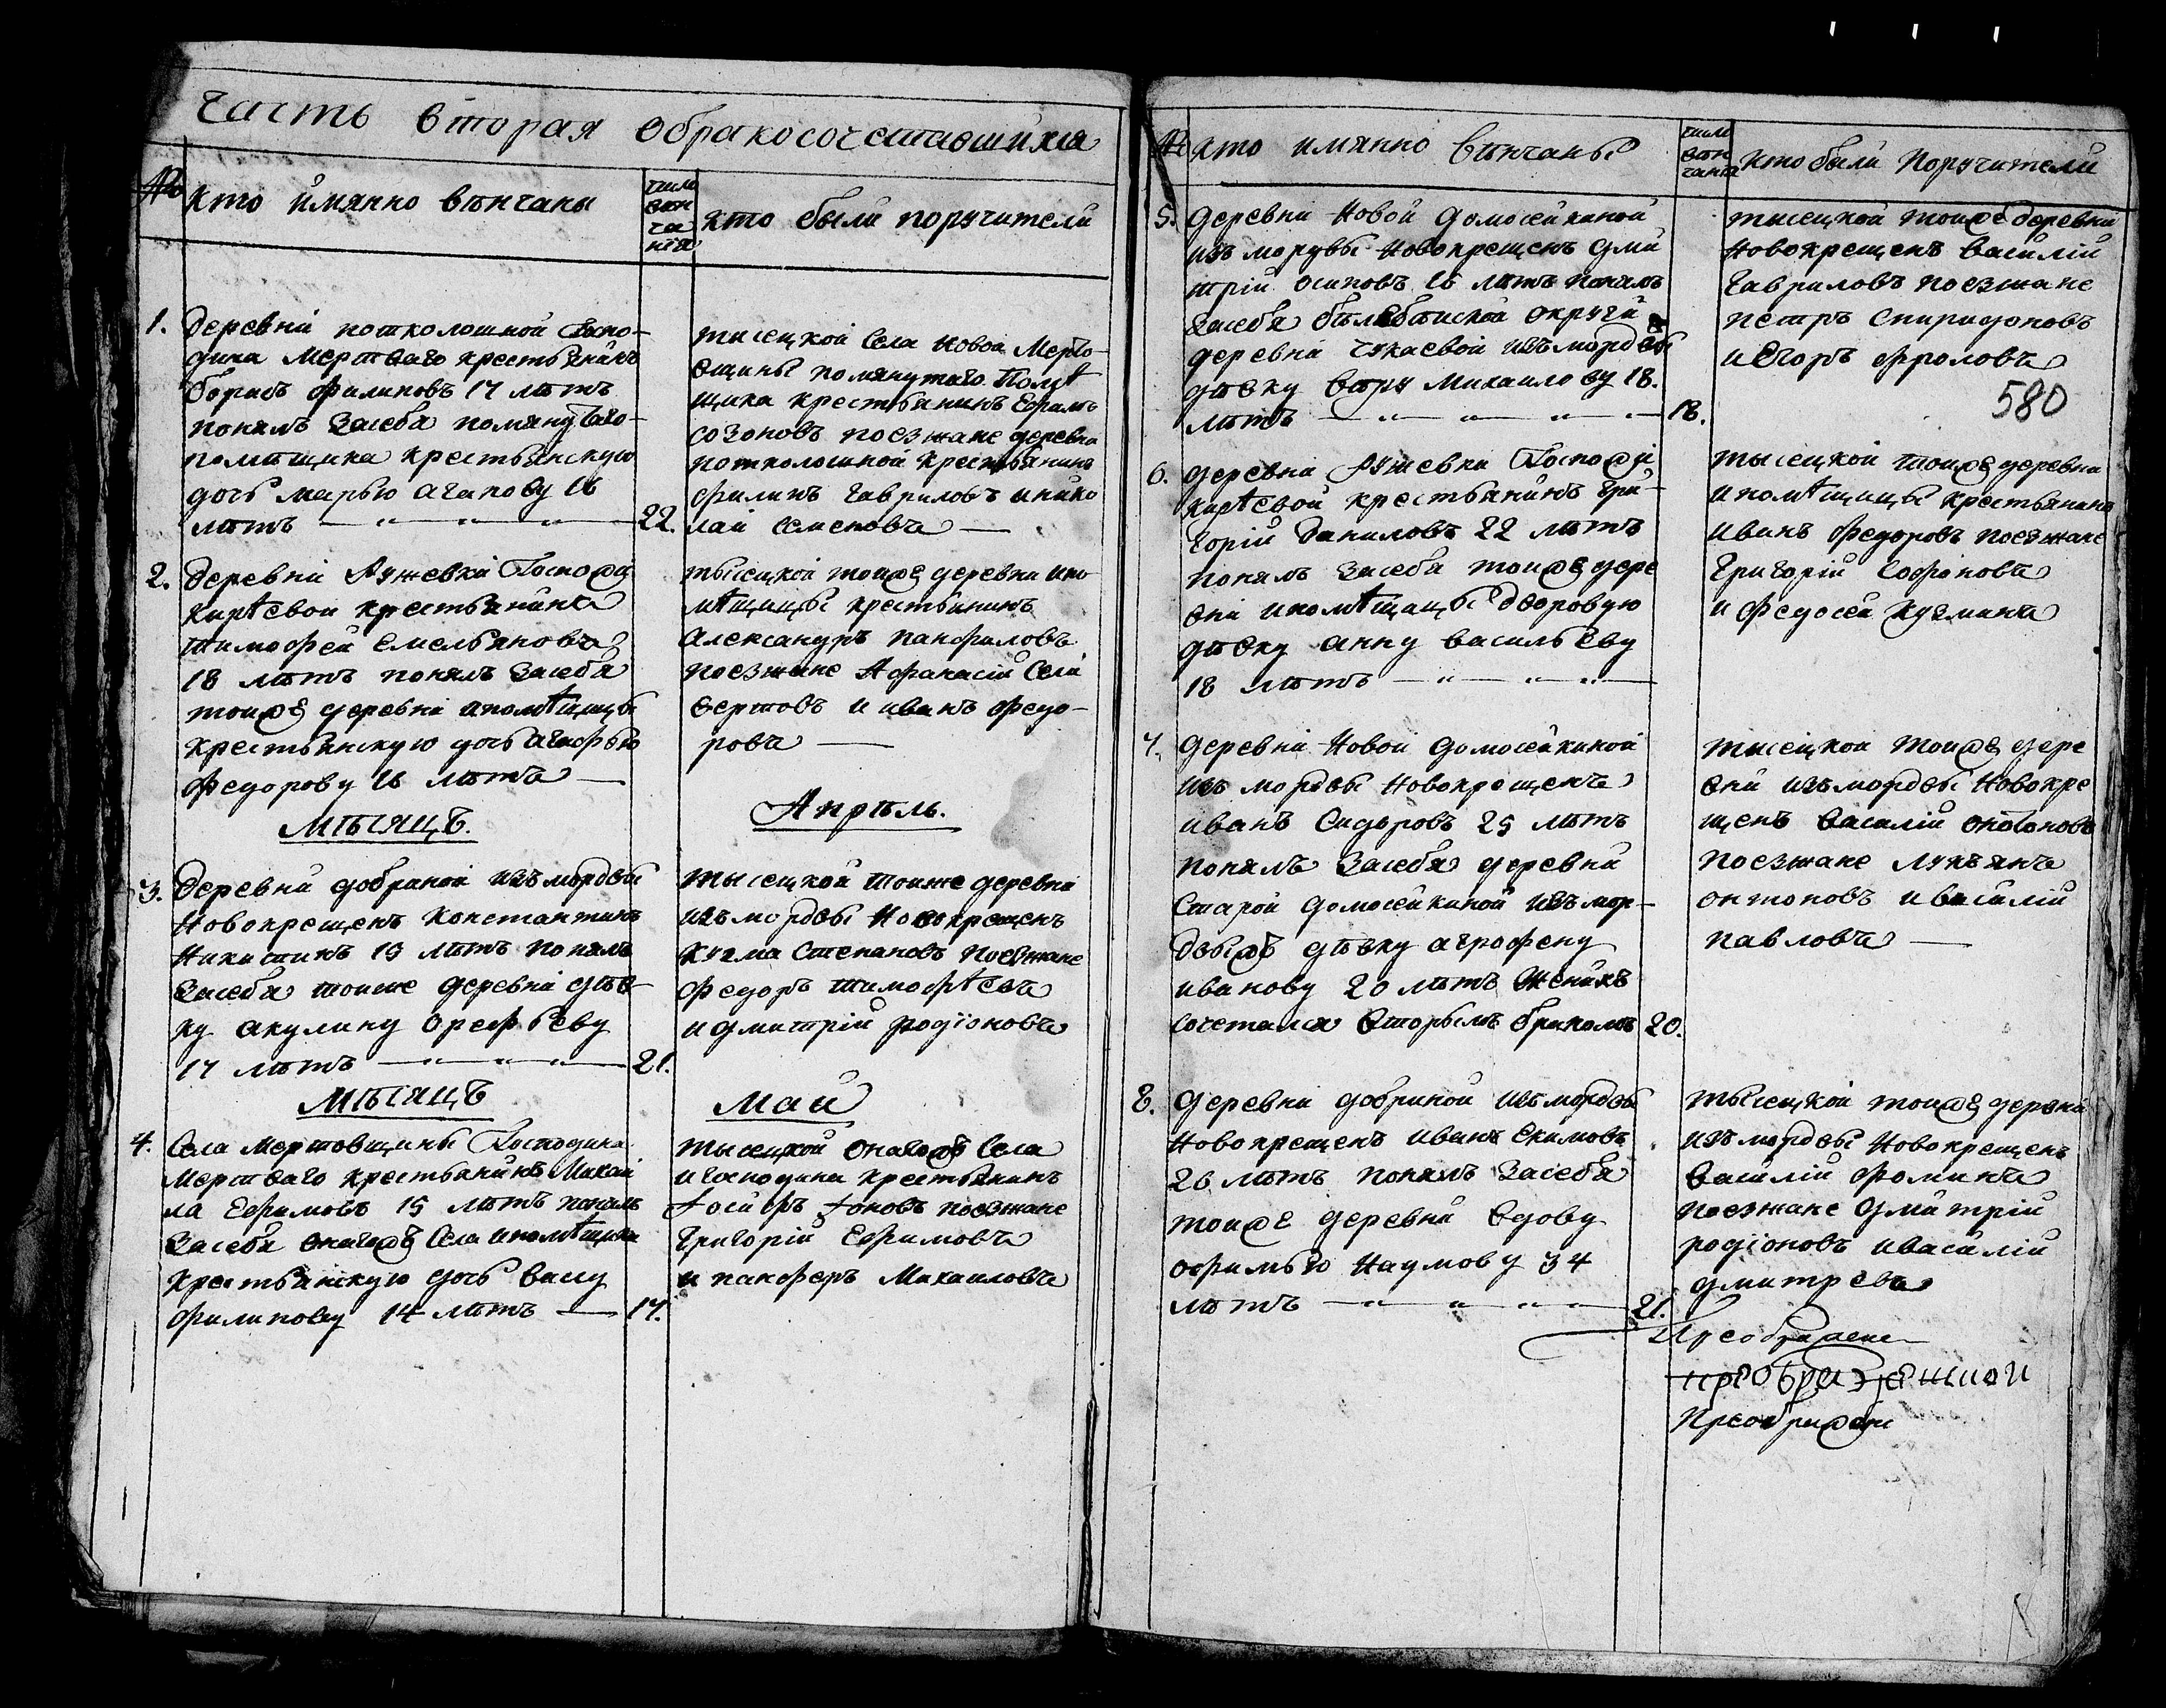 Часть вторая обракосочетавшихся
№ кто имянно венчаны
числ венчания
кто были поручители
1. деревни потколошной Госпо-
дина Мертваго крестьянинъ
борисъ филиповъ 17 летъ
понялъ засебя помянутаго
помѣщика крестьянскую
дочь марью агапову 16
летъ — 22.
тысецкой Села Новой Мерто-
вщины помянутаго Помѣ
щика крестьянинъ Ефимъ
созоновъ поезжане деревни
потколошной крестьянинъ
филипъ гавриловъ инико
лай семеновъ —
2. деревни Аужевки Госпожи
Кирѣевой крестьянинъ
тимофей емельяновъ
18 летъ понялъ засебя
тоиже деревни ипомѣщицы
крестьянскую дочь агафью
федорову 16 летъ —
тысецкой тоиже деревни ипо
мѣщицы крестьянинъ
александръ панфиловъ
поезжане Афанасий Сели
верстовъ и иванъ федо-
ровъ —
мѣсяцъ.
Апрѣль.
3. деревни добриной изъ мордвы
Новокрещенъ Константинъ
Никитинъ 19 летъ понялъ
засебя тоиже деревни дѣв-
ку акулину орефьеву
17 летъ — 21.
тысецкой тоиже деревни
изъ мордвы Новокрещенъ
кузма Степановъ поезжане
федоръ тимофѣевъ
и дмитрий родїоновъ
мѣсяцъ
май
4. Села Мертовщины Господина
Мертваго крестьянинъ Михаи
ла Ефимовъ 15 летъ понялъ
засебя онагожъ Села ипомѣщика
крестьянскую дочь васу
филипову 14 летъ — 17.
тысецкой онагожъ Села
игосподина крестьянинъ
Григорий Ефимовъ
и панферъ Михаиловъ
№ кто имянно венчаны
числ вен чания
кто были поручители
5. деревни Новой домосейкиной
изъ мордвы Новокрещенъ дми
трий осиповъ 16 летъ понялъ
засебя бѣлебѣиской округи
деревни чукаевой изъ мордвы
дѣвку веру Михаилову 18.
летъ — 18.
тысецкой тоиже деревни
Новокрещенъ василий
гавриловъ поезжане
петръ спиридоновъ
и Егоръ фроловъ
580
6. деревни Аужевки Госпожи
Кирѣевой крестьянинъ гри-
горий даниловъ 22 летъ
понялъ засебя тоиже дере
вни ипомѣщицы дворовую
дѣвку анну васильеву
18 летъ —
тысецкой тоиже деревни
ипомѣщицы крестьянинъ
иванъ федоровъ поезжане
Григорий Софроновъ
и федосей кузминъ
7. деревни Новой домосейкиной
изъ мордвы Новокрещенъ
иванъ Сидоровъ 25 летъ
понялъ засебя деревни
Старой домосейкиной изъ мор-
двыжъ дѣвку агрофену
иванову 20 летъ женихъ
сочетался вторымъ бракомъ 20.
тысецкой тоиже дере
вни изъ мордвы Новокре
щенъ василий онтоновъ
поезжане лукъянъ
онтоновъ и василий
павловъ —
8. деревни добриной изъ мордвы
Новокрещенъ иванъ екимовъ
26 летъ понялъ засебя
тоиже деревни вдову
офимью Наумову 34
летъ — 21.
тысецкой тоиже деревни
изъ мордвы Новокрещенъ
василий фоминъ
поезжане дмитрий
родїоновъ ивасилий
дмитревъ
Преображене
преображенской
Преображене